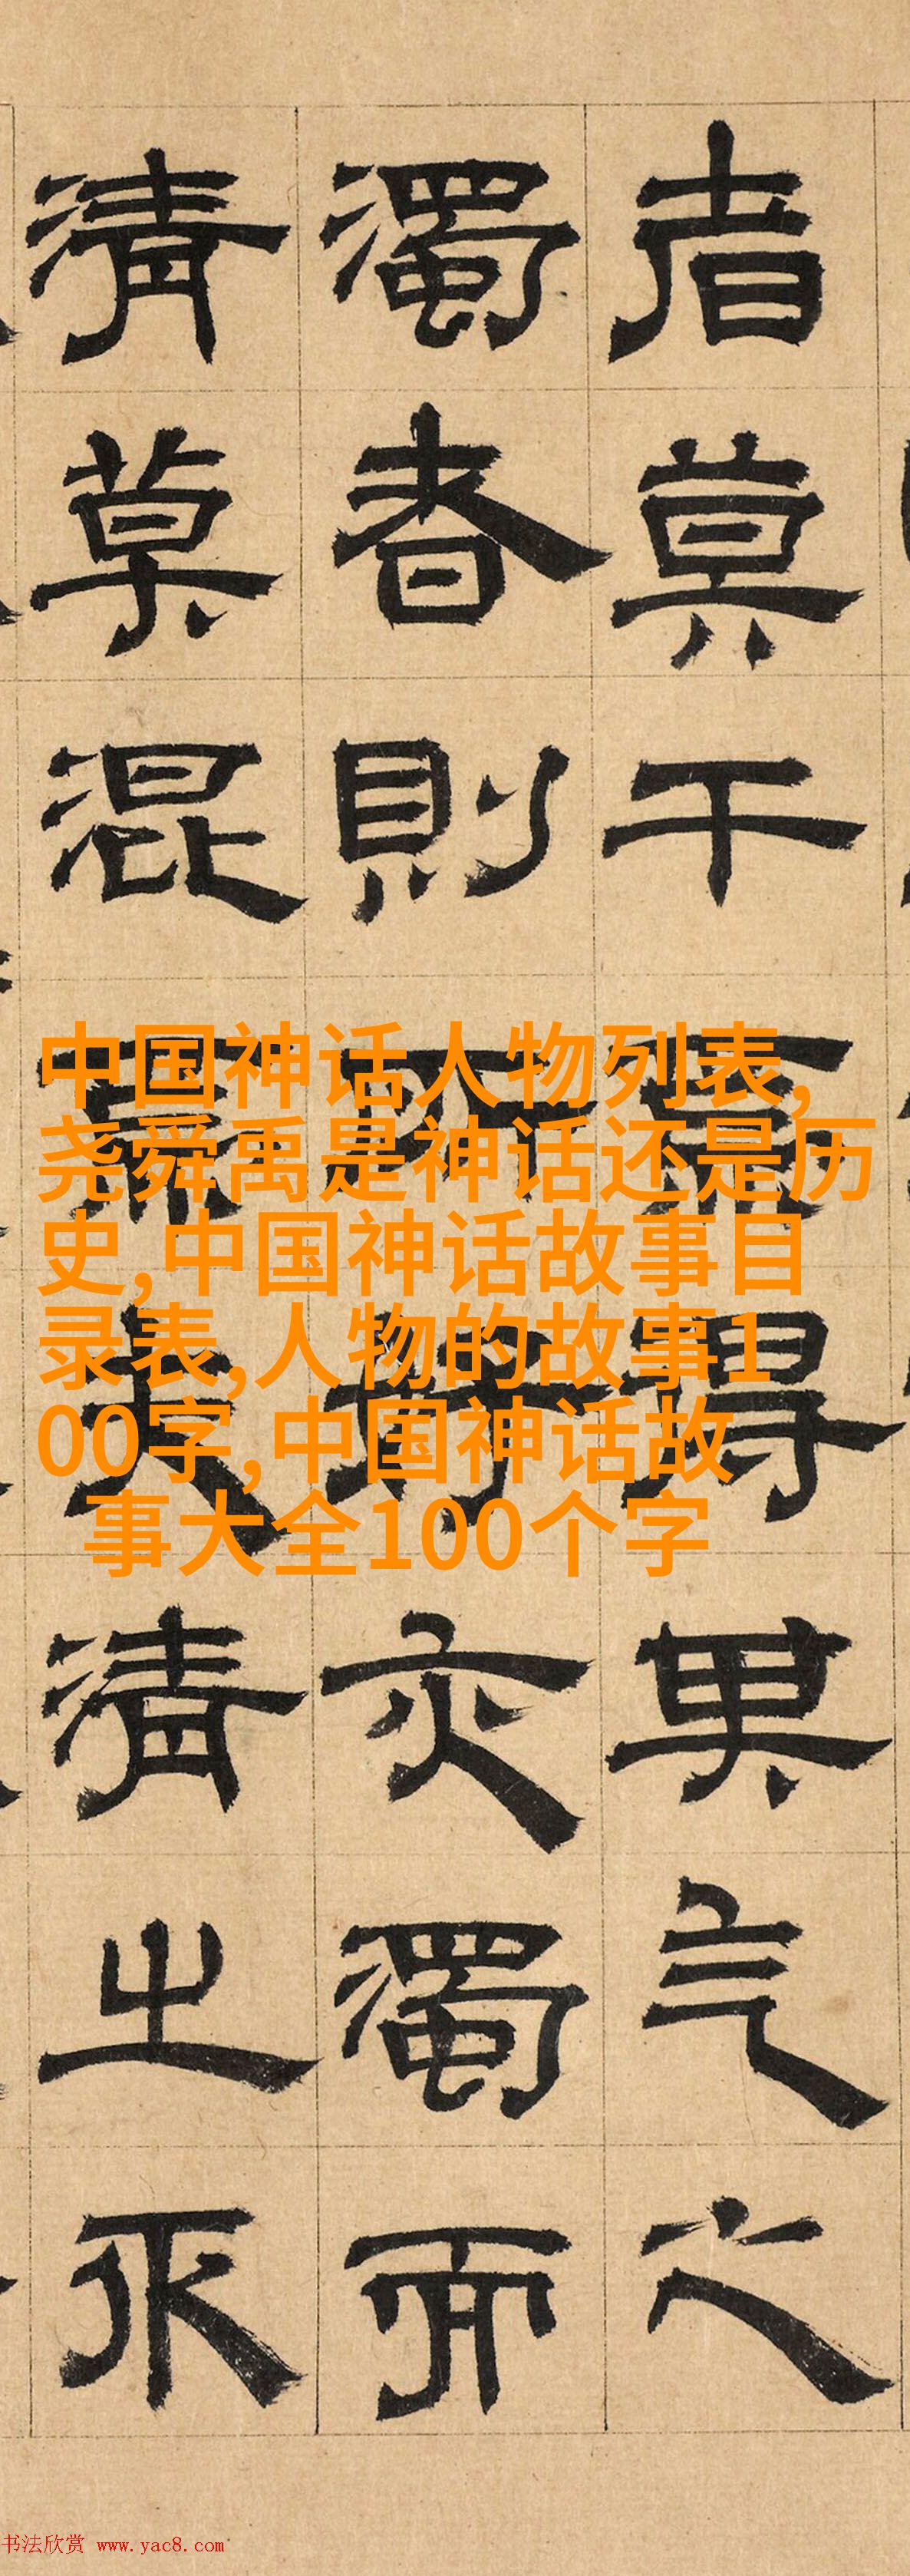 者莫干得气之
濁者則亦濁而
清混清之
中国神话人物列表,
尧舜禹是神话还是历
史,中国神话故事目
录表,人物的故事1
00字,中国神话故
事大全100个字
书法欣赏 www.yac8.com